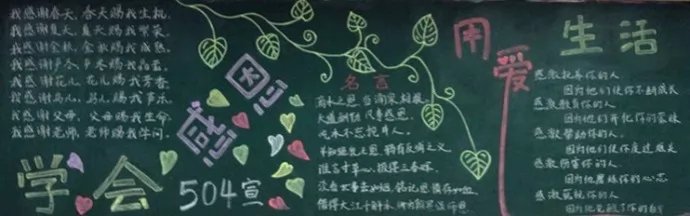 我感谢春天，春天赐我生机，
我感谢夏天，夏天赐我繁荣，
我感谢金秋，金秋赐我成熟，
我感谢严冬，严冬赐我晶莹，
我感谢花儿，花儿赐我芳香，
我感谢鸟儿，鸟儿赐我声乐，
我感谢父母，父母赐我生命，
我感谢老师，老师赐我学问，
学会
感恩
504宣
名言
滴水之恩，当涌泉相报。
饮水不忘挖井人。
谁言寸草心，报得三春晖。
用爱
生活
感激抚养你的人
因为他们使你不断成长
感激教育你的人
因为他们开化你的蒙昧
感激帮助你的人
因为他们使你度过难关
感激伤害你的人
因为他磨炼你的心态
感激藐视你的人
因为他觉醒了你的自尊